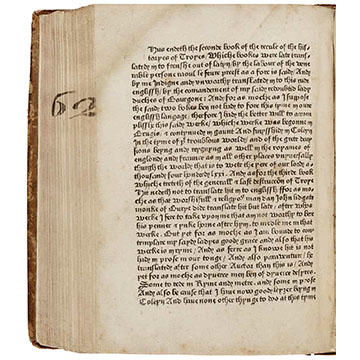 62
Hus endeth the seconde book of the recule of the his-
toryes of Troyes / Whiche bookes were late trans-
lated in to frenshe out of latyn / by the labour of the vene-
rable persone raoul le feure preest as a fore is said / And
by me Indigne and unworthy translated in to this rude
englissh / by the comandement of my said redoubtid lady
duches of Bourgone : And for as moche as I suppose
the said two bookes ben not had to fore this tyme in oure
englissh langage / therfore I had the better will to accom-
plisshe this said werke / whiche werke was begonne in
Brugis / & contynued in gaunt And finysshid in Coleyn
In the tyme of yͤ troublous world / and of the grete deuy-
sions beyng and reygnyng as well in the royames of
englond and fraunce as in all other places unyuersally
thurgh the world that is to wete the yere of our lord a.
thousand four honderd lxxi. And as for the thirde book
whiche treteth of the generall & last destruccion of Troye
Hit nedeth not to translate hit in to englissh / ffor as mo-
che as that worshifull & religyoꝰ man dan John lidgate
monke of Burye did translate hit but late / after whos
werke I fere to take vpon me that am not worthy to bere
his penner & ynke horne after hym. to medle me in that
werke. But yet for as moche as I am bounde to con-
templare my sayd ladyes good grace and also that his
werke is in ryme / And as ferre as I knowe hit is not
had in prose in our tonge / And also parauenture / he
translated after some other Auctor than this is / And
yet for as moche as dyuerce men ben of dyuerce desyres.
Some to rede in Ryme and metre. and some in prose
And also be cause that I haue now good leyzer beyng in
Coleyn And haue none other thynge to doo at this tyme